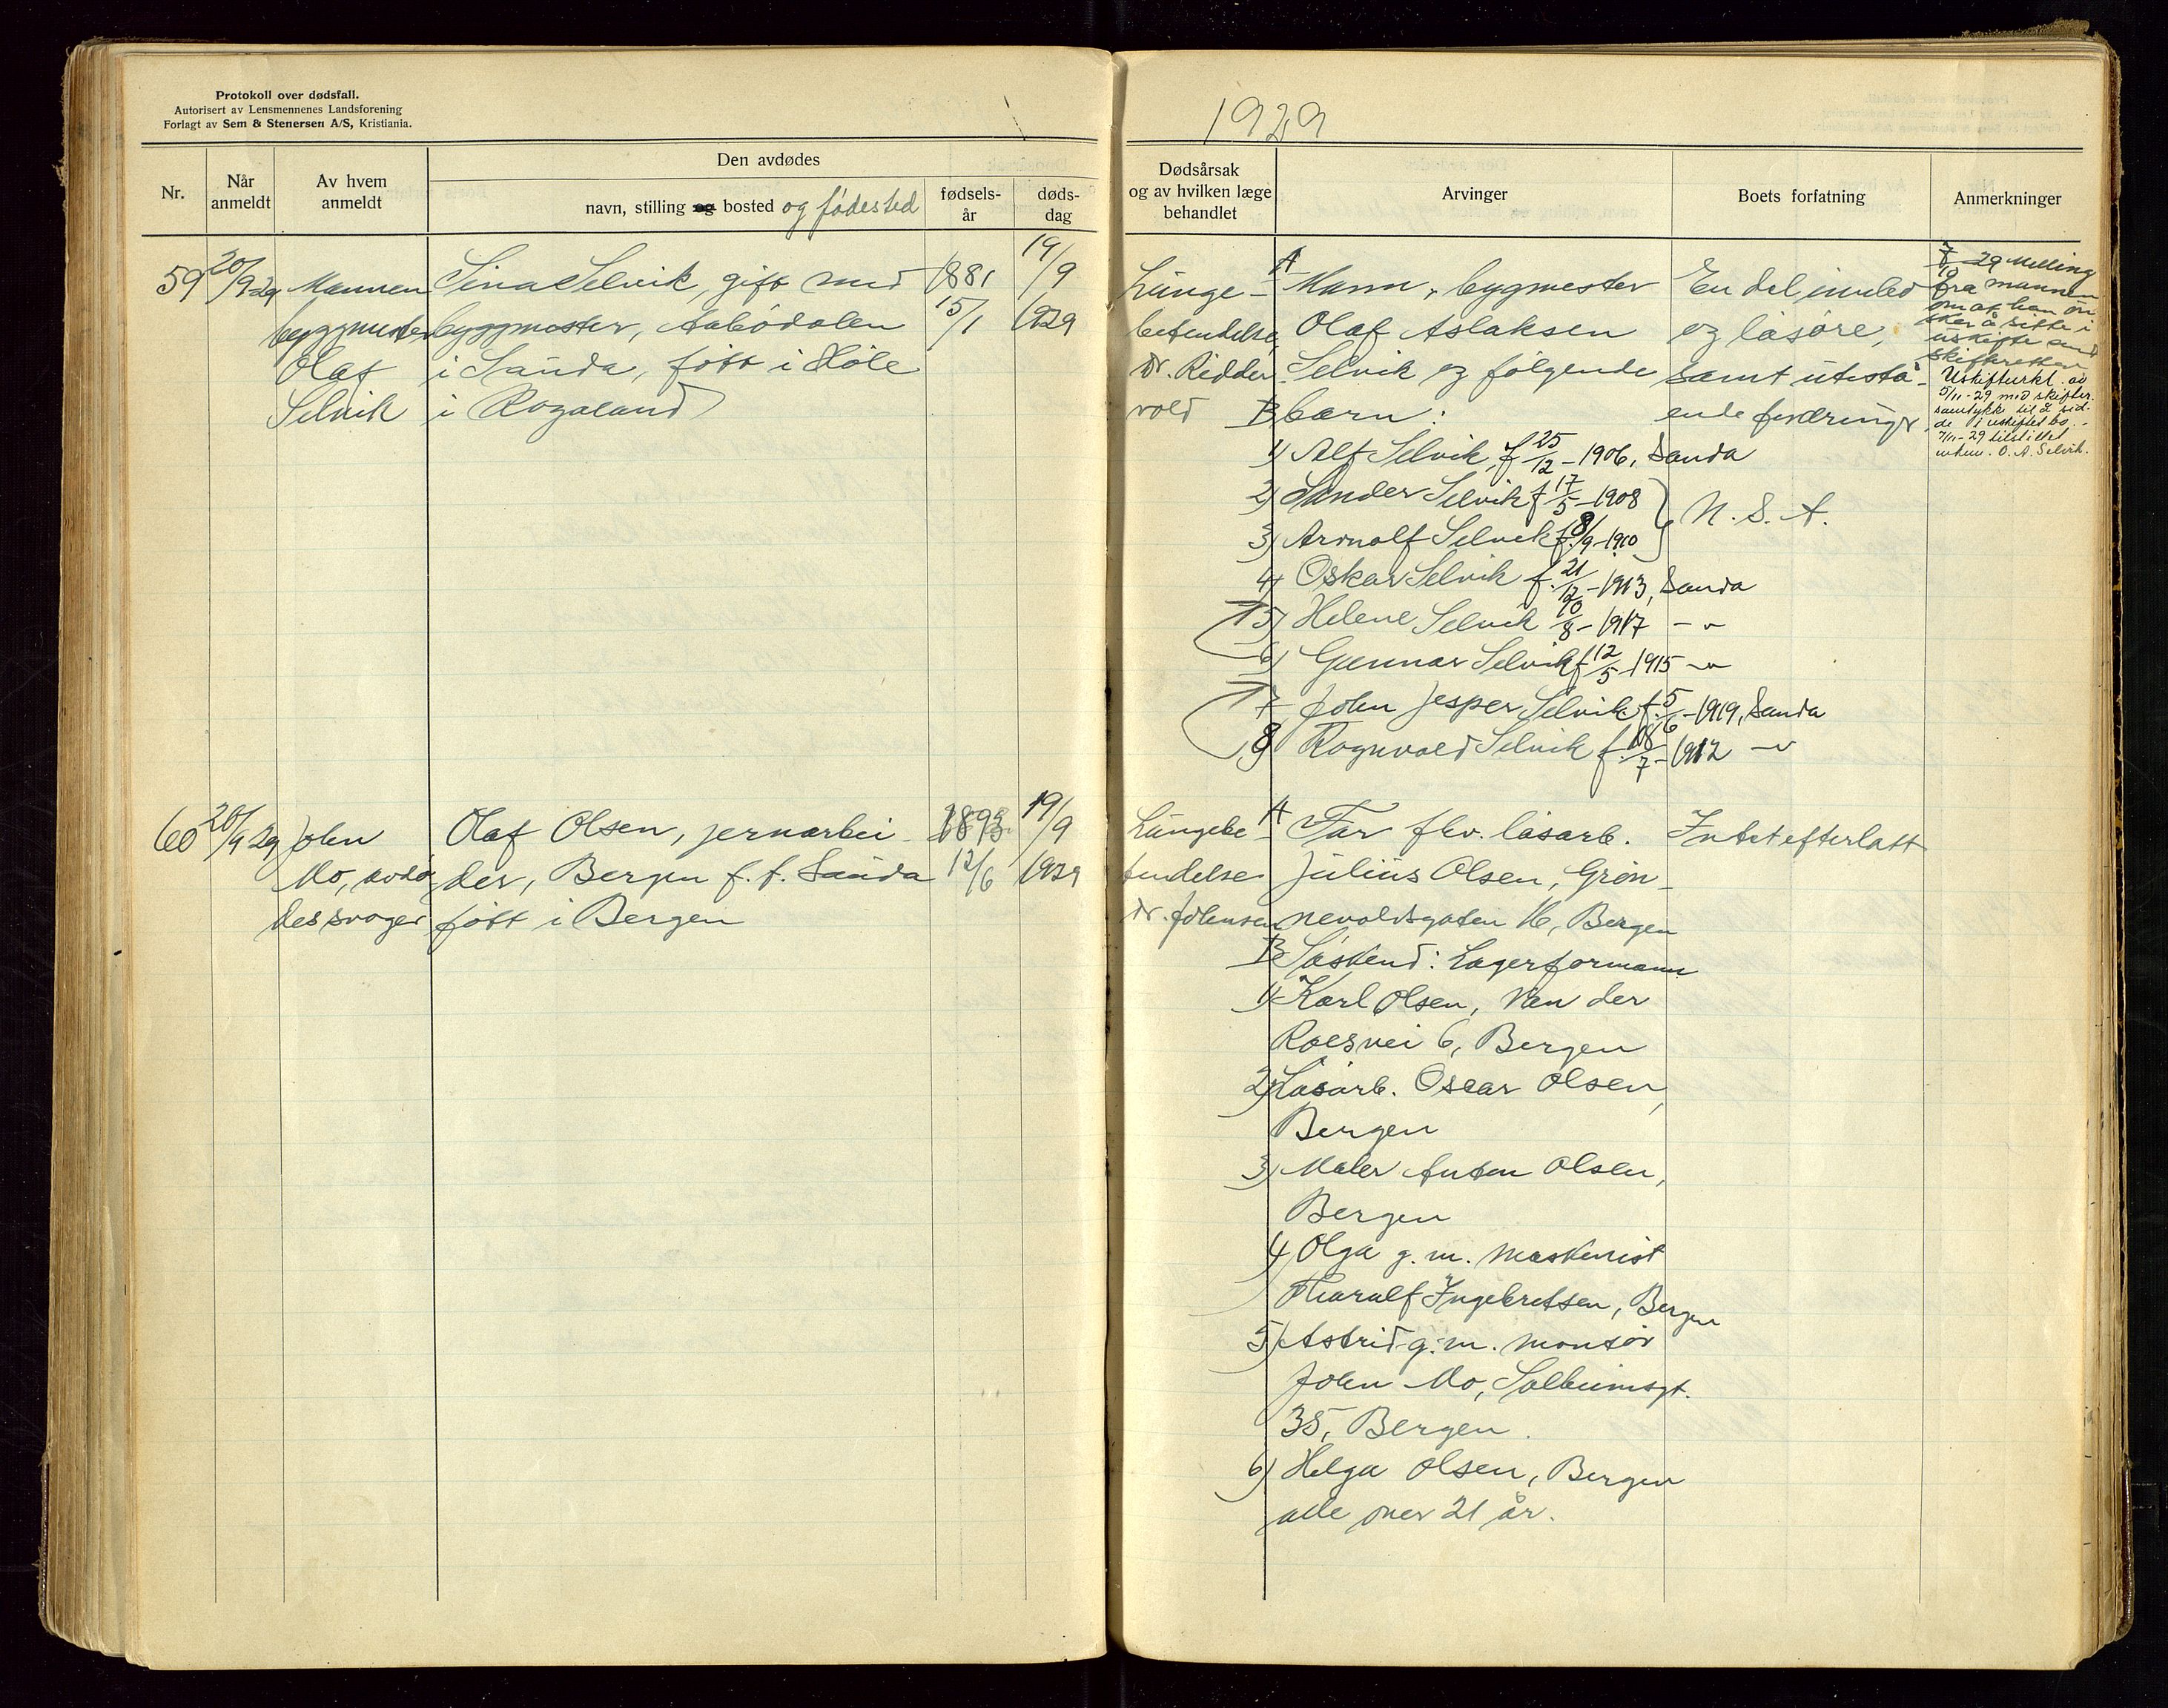 Protokoll over dødsfall.
Autorisert av Lensmennenes Landsforening
Forlagt av Sem & Stenersen A/S, Kristiania.
Nr.
Når anmeldt
Av hvem anmeldt
Den avdødes
navn, stilling og bosted og fødested
fødsels-år
døds-dag
59
20/9 29
Mannen
byggmester
Olaf
Selvik
Sina Selvik, gift med
byggmester,
i Sauda, født i Høle
i Rogaland
1881
15/1
19/9
1929
60
20/9 29
John
Mo, avdø
des svoger
Olaf Olsen, jernarbei-
der, Bergen f. f. Sauda
født i Bergen
1893
12/6
19/9
1929
1929
Dødsårsak
og av hvilken læge
behandlet
Arvinger
Boets forfatning
Anmerkninger
Lunge-
betendelse,
Dr. Ridder
vold
A Mann, bygmester
Olaf Aslaksen
Selvik og følgende
B bærn:
1) Alf Selvik, f 25/12 - 1906, Sauda
2) Sander Selvik f 17/5 - 1908
3) Arnolf Selvik f. 8/9 - 1910
N. S. A.
4) Oskar Selvik f. 21/12 - 1913, Sauda
5) Helene Selvik 10/8 - 1917 - " -
6) Gunnar Selvik f 12/5 - 1915 - " -
7 John Jesper Selvik f. 5/6 - 1919, Sauda
8) Rognvald Selvik f. 18/7 - 1912 - " -
En del innbo
og løsøre,
samt utestå-
ende fordringer
29 Melding
fra mannen
om at han øn
sker å sitte i
uskifte
skifteretten
Uskifteerkl. av
5/11 - 29 med skifter.
samtykke til å sid-
de i uskiftet bo. -
7/11 - 29 tilstillet
O. A. Selvik.
Lungebe
tendelse
Dr. Johnsen
A Far fhv. låsarb.
Julius Olsen, Grøn-
nevoldsgaten 16, Bergen
B Søskend: Lagerformann
1) Karl Olsen, Van der
Roesvei 6, Bergen
2) Låsarb. Oscar Olsen,
Bergen
3) Maler Anton Olsen,
Bergen
4) Olga g. m. maskinist
Tharalf Ingebretsen, Bergen
5) Astrid g. m. montør
John Mo, Solheimsgt.
35, Bergen.
6) Helga Olsen, Bergen
alle over 21 år.
Intet efterlatt